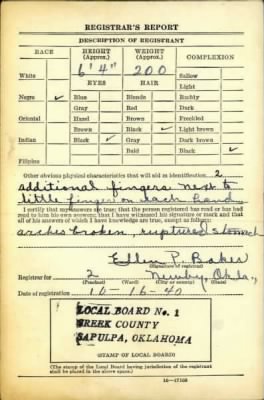 REGISTRAR'S REPORT
DESCRIPTION OF REGISTRANT
RACE
HEIGHT (Approx.)
WEIGHT (Approx.)
COMPLEXION
6' 4"
200
White
EYES
HAIR
Sallow
Light
Negro ✓
Blue
Blonde
Ruddy
Gray
Red
Dark
Oriental
Hazel
Brown
Freckled
Brown
Black ✓
Light brown
Indian
Black ✓
Gray
Dark brown
Bald
Black ✓
Filipino
Other obvious physical characteristics that will aid in identification 2
additional fingers next to
little finger on each hand
I certify that my answers are true; that the person registered has read or has had
read to him his own answers; that I have witnessed his signature or mark and that
all of his answers of which I have knowledge are true, except as follows:
arches broken, ruptured stomach
P. Baker
(Signature of registrar)
Registrar for 2 Newby, Okla,
(Precinct) (Ward) (City or county) (State)
Date of registration 10-16-40
LOCAL BOARD No. 1
CREEK COUNTY
SAPULPA, OKLAHOMA
(STAMP OF LOCAL BOARD)
(The stamp of the Local Board having jurisdiction of the registrant
shall be placed in the above space.)
16—17105